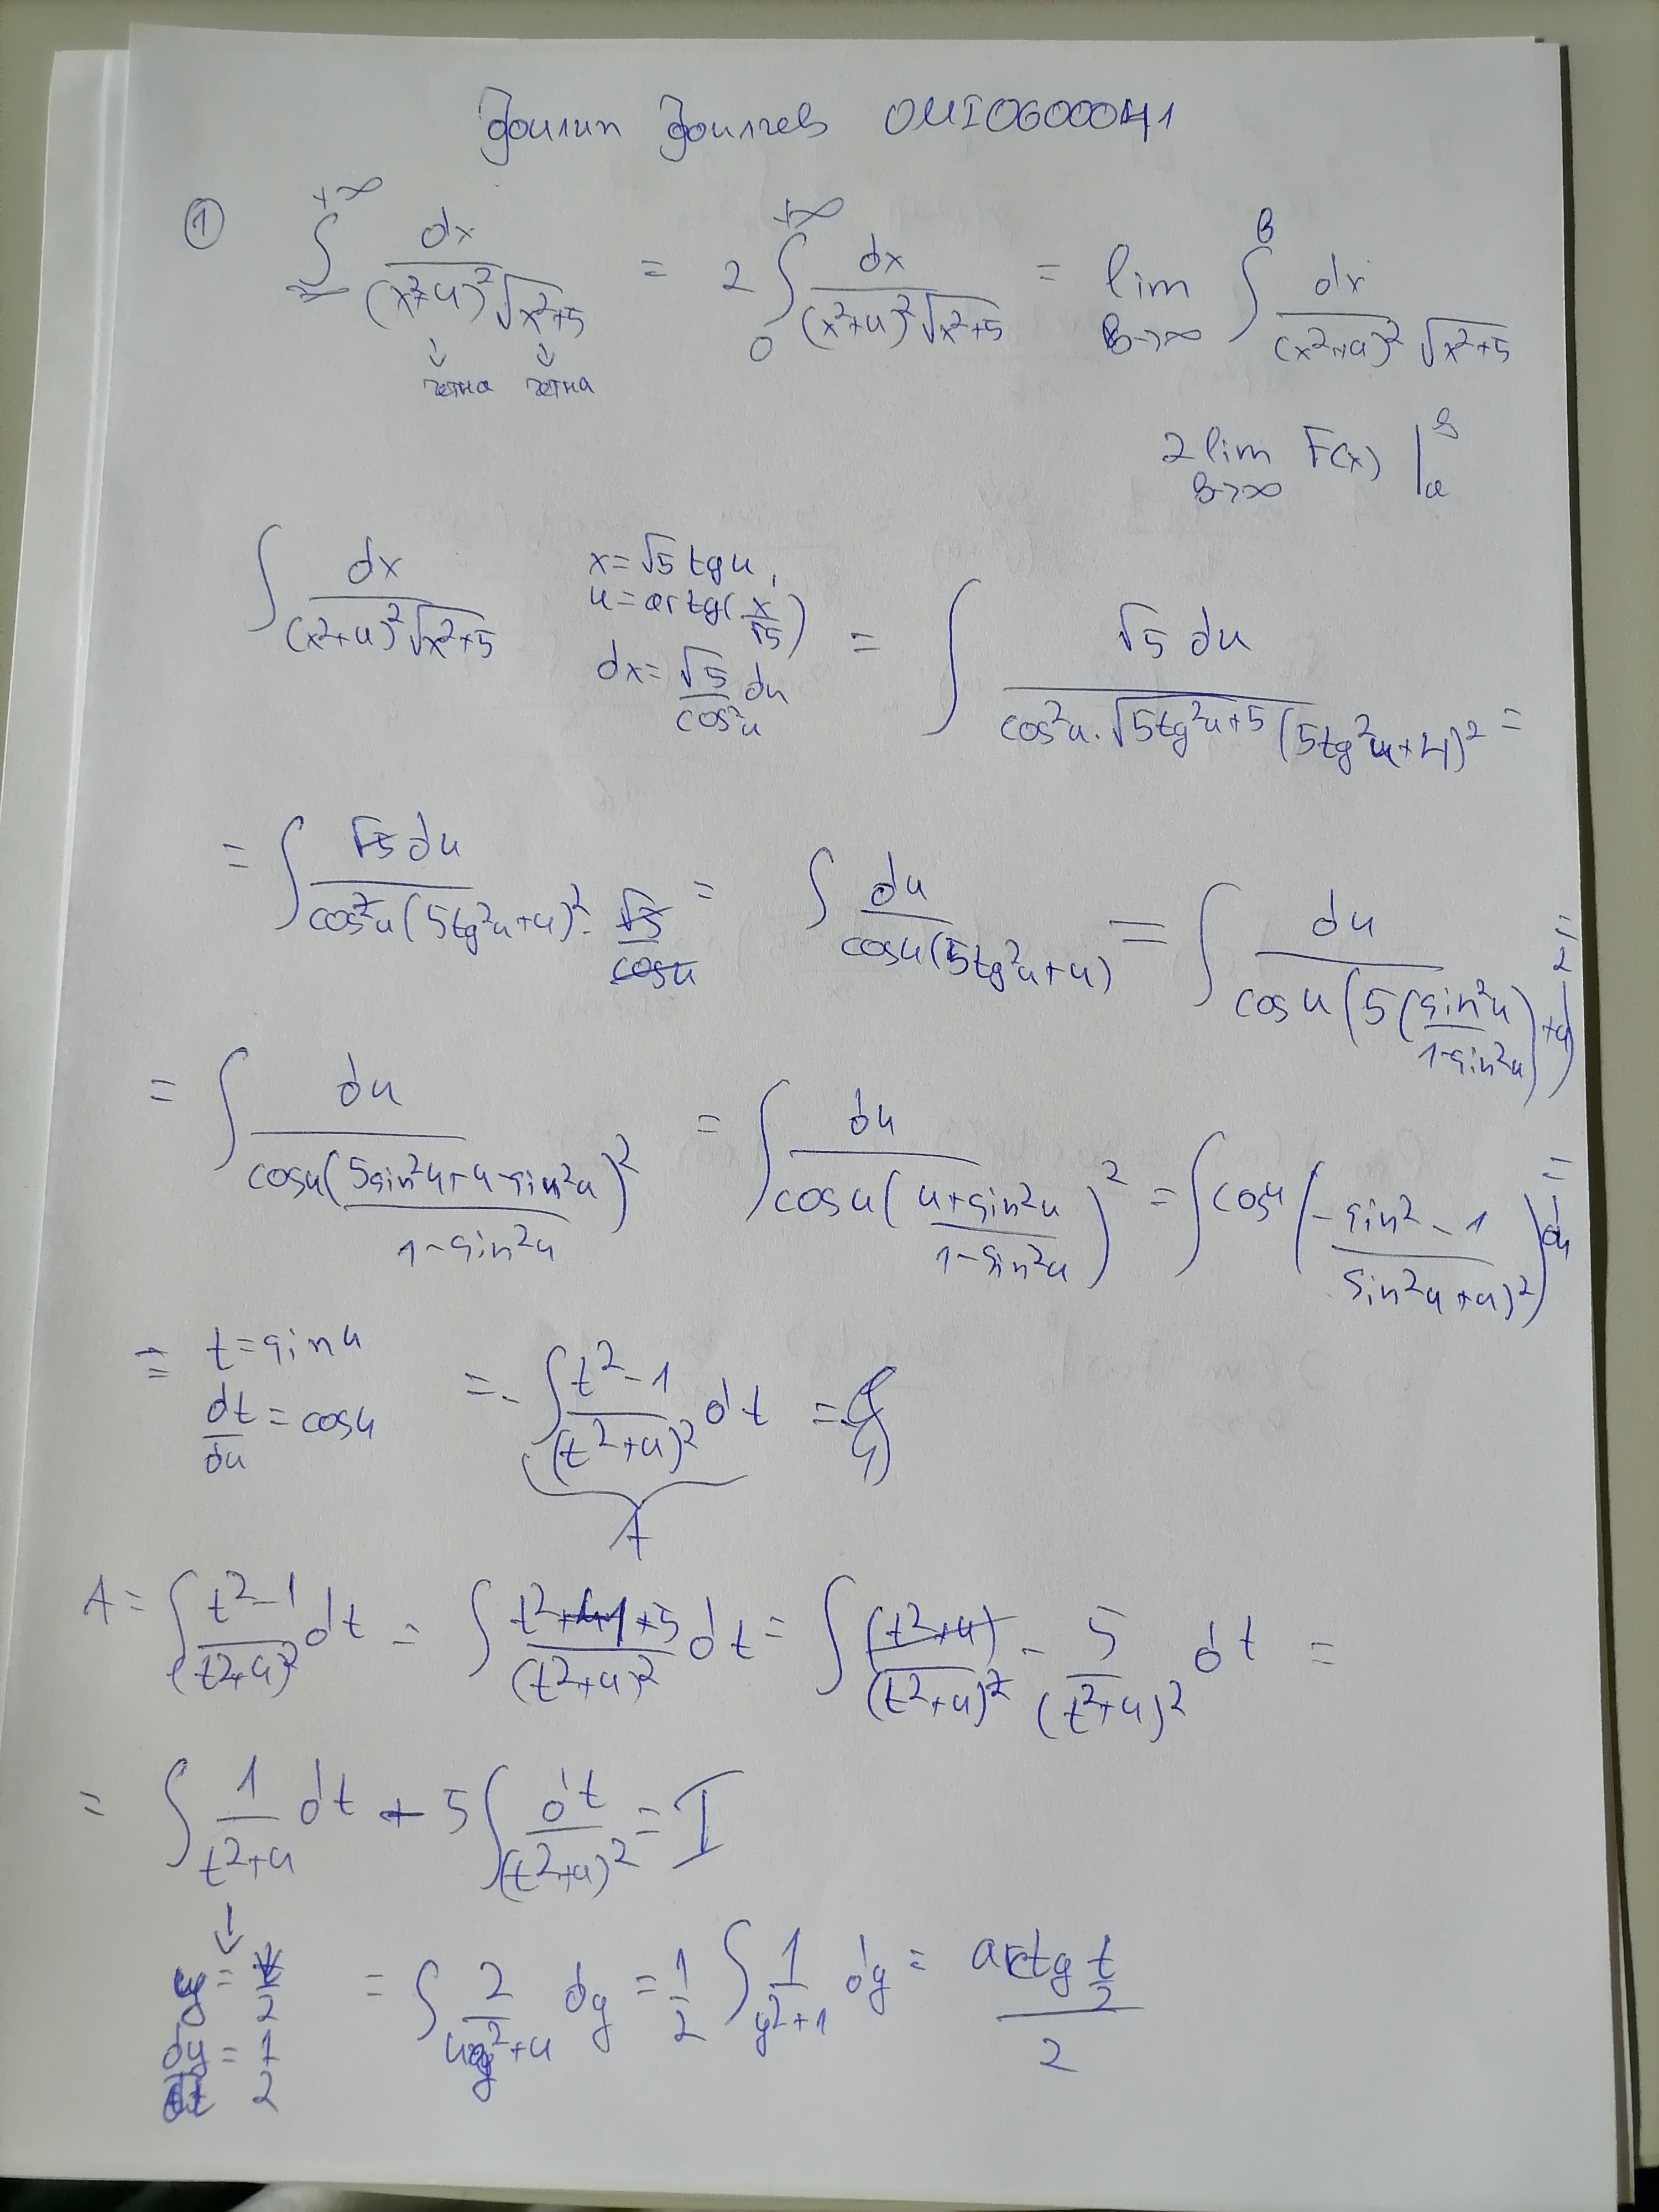 Филип Филчев 0MI0600041
① ∫_{-∞}^{+∞} dx/((x²+4)²√(x²+5)) = 2∫_0^{+∞} dx/((x²+4)²√(x²+5)) = lim_{B→∞} ∫^B dx/((x²+4)²√(x²+5))
четна четна
2 lim_{B→∞} F(x) |_a^B
∫ dx/((x²+4)²√(x²+5)) x=√5 tg u, u=artg(x/√5) dx=√5/cos²u du = ∫ √5 du/(cos²u.√(5tg²u+5)(5tg²u+4)²) =
= ∫ √5 du/(cos²u(5tg²u+4)².√5/cosu) = ∫ du/(cosu(5tg²u+4)) = ∫ du/(cosu(5(sin²u/(1-sin²u))+4)²) =
= ∫ du/(cosu((5sin²u+4-sin²u)/(1-sin²u))²) = ∫ du/(cosu((4+sin²u)/(1-sin²u))²) = ∫ cosu(-(sin²-1)/(sin²u+4)²) du =
= t=sinu dt/du=cosu = -∫ (t²-1)/(t²+4)² dt =
A
A = ∫ (t²-1)/(t²+4)² dt = ∫ (t²+4+5)/(t²+4)² dt = ∫ (t²+4)/(t²+4)² - 5/(t²+4)² dt =
= ∫ 1/(t²+4) dt - 5∫ dt/(t²+4)² = I
↓
y=t/2 = ∫ 2/(4y²+4) dy = 1/2 ∫ 1/(y²+1) dy = (arctg t/2)/2
dy=1/2